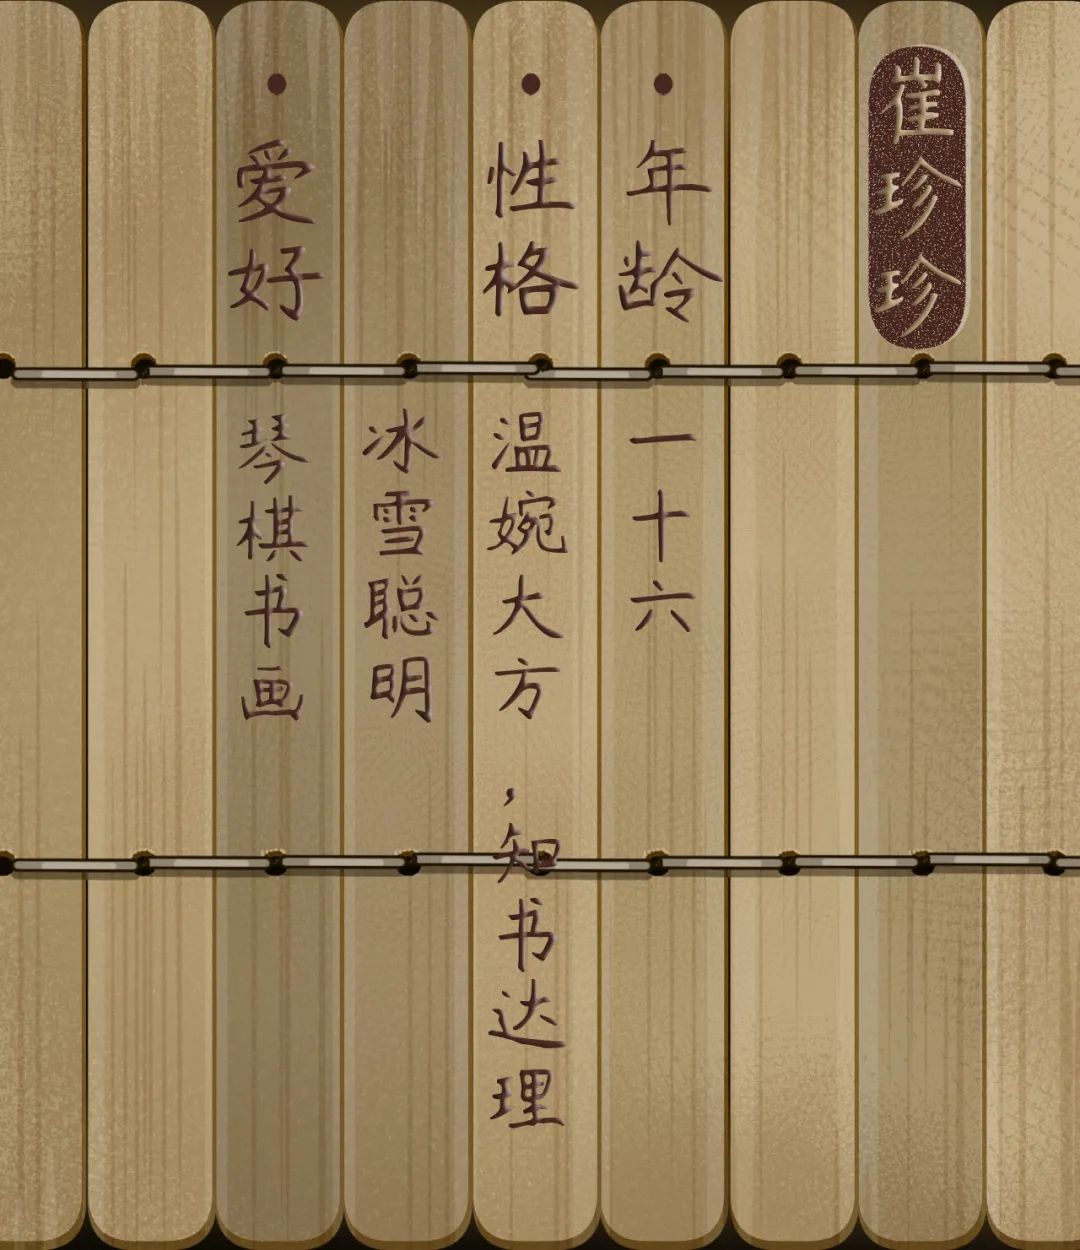 崔珍珍
年龄
一十六
性格
温婉大方，知书达理
冰雪聪明
爱好
琴棋书画